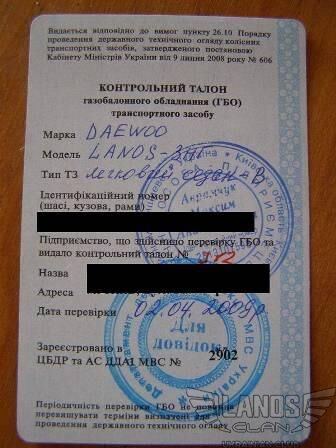 Видається відповідно до вимог пункту 26.10 Порядку
проведення державного технічного огляду колісних
транспортних засобів, затвердженого постановою
Кабінету Міністрів України від 9 липня 2008 року № 606
КОНТРОЛЬНИЙ ТАЛОН
газобалонного обладнання (ГБО)
транспортного засобу
Марка DAEWOO
Модель LANOS-
Тип ТЗ легковий седан-В
Ідентифікаційний номер
(шасі, кузова, рами)
Підприємство, що здійснило перевірку ГБО та
видало контрольний талон №
Назва
Адреса
Дата перевірки 02.04.2009р
Для
довідок
Зареєстровано в
ЦБДР та АС ДДАІ МВС № 2902
Періодичність перевірки ГБО не повинна
перевищувати терміни визначені для
проведення державного технічного огляду
LANOS
CLAN